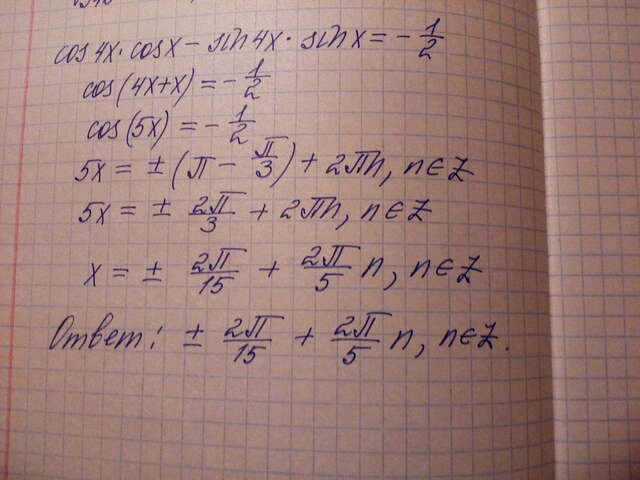 cos4x·cosx − sin4x·sinx = −1/2
cos(4x+x) = −1/2
cos(5x) = −1/2
5x = ±(π − π/3) + 2πn, n∈Z
5x = ± 2π/3 + 2πn, n∈Z
x = ± 2π/15 + 2π/5 n, n∈Z
Ответ: ± 2π/15 + 2π/5 n, n∈Z.